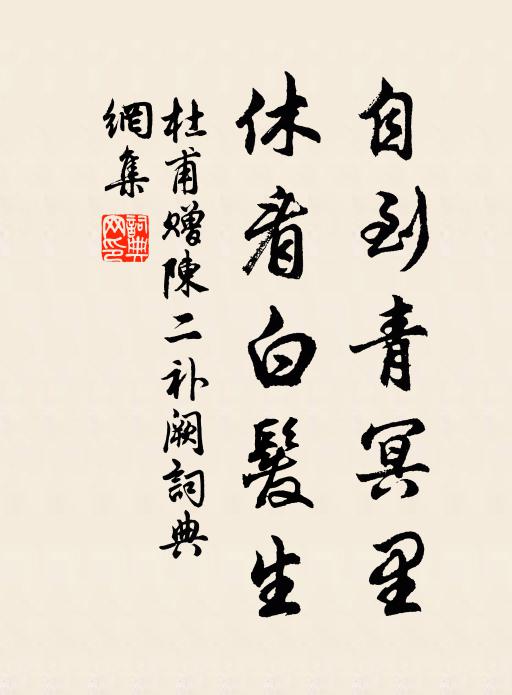 自到青冥里
休看白髮生
杜甫贈陳二补闕詞典
網集
詞典網印